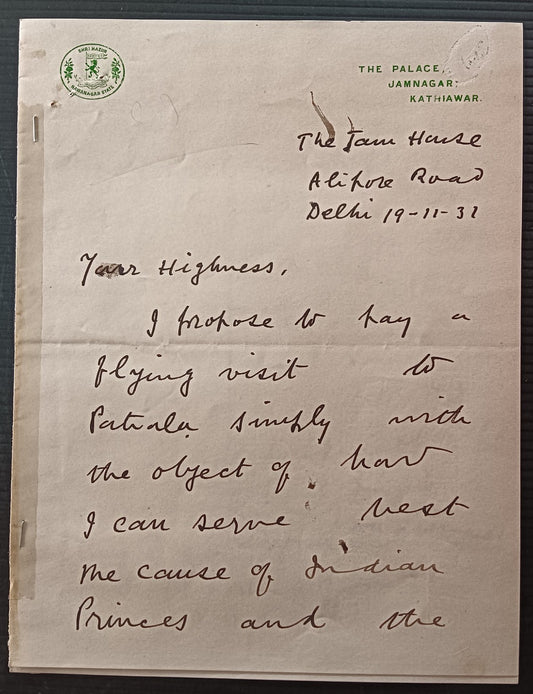 SHRI HAZUR
NAWANAGAR STATE
THE PALACE,
JAMNAGAR:
KATHIAWAR.
The Jam House
Alipore Road
Delhi 19-11-31
Your Highness,
I propose to pay a
flying visit to
Patiala simply with
the object of how
I can serve best
the cause of Indian
Princes and the